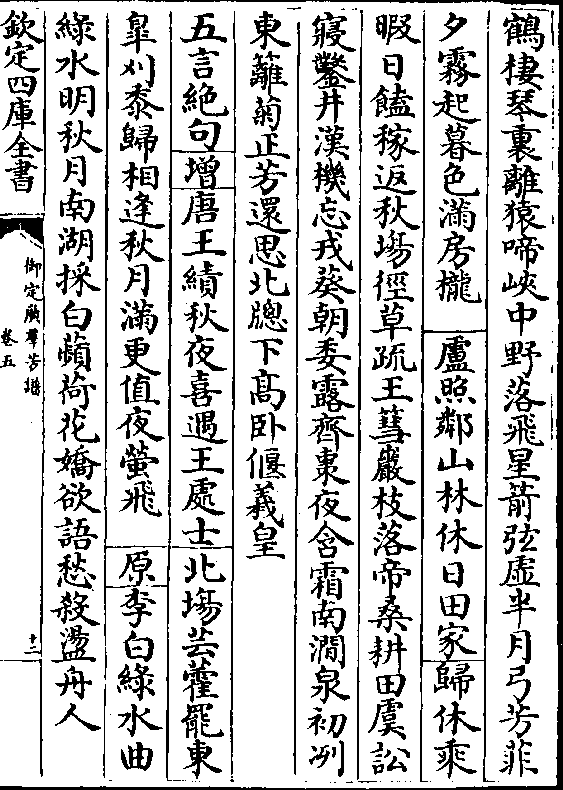 鶴棲琴裏離猿啼峽中野落飛星箭弦虛半月弓芳菲
夕霧起暮色滿房櫳　盧照鄰山林休日田家歸休乘
暇日饁稼返秋塲徑草疏王彗巖枝落帝桑耕田虞訟
寢鑿井漢機忘戎葵朝委露齊棗夜含霜南澗泉初冽
東籬菊正芳還思北牕下高卧偃羲皇
五言絶句增唐王績秋夜喜遇王處士北塲芸藿罷東
臯刈黍歸相逢秋月滿更值夜螢飛　原李白綠水曲
綠水明秋月南湖採白蘋荷花嬌欲語愁殺盪舟人
欽定四庫全書
御定廣羣芳譜
卷五
十二